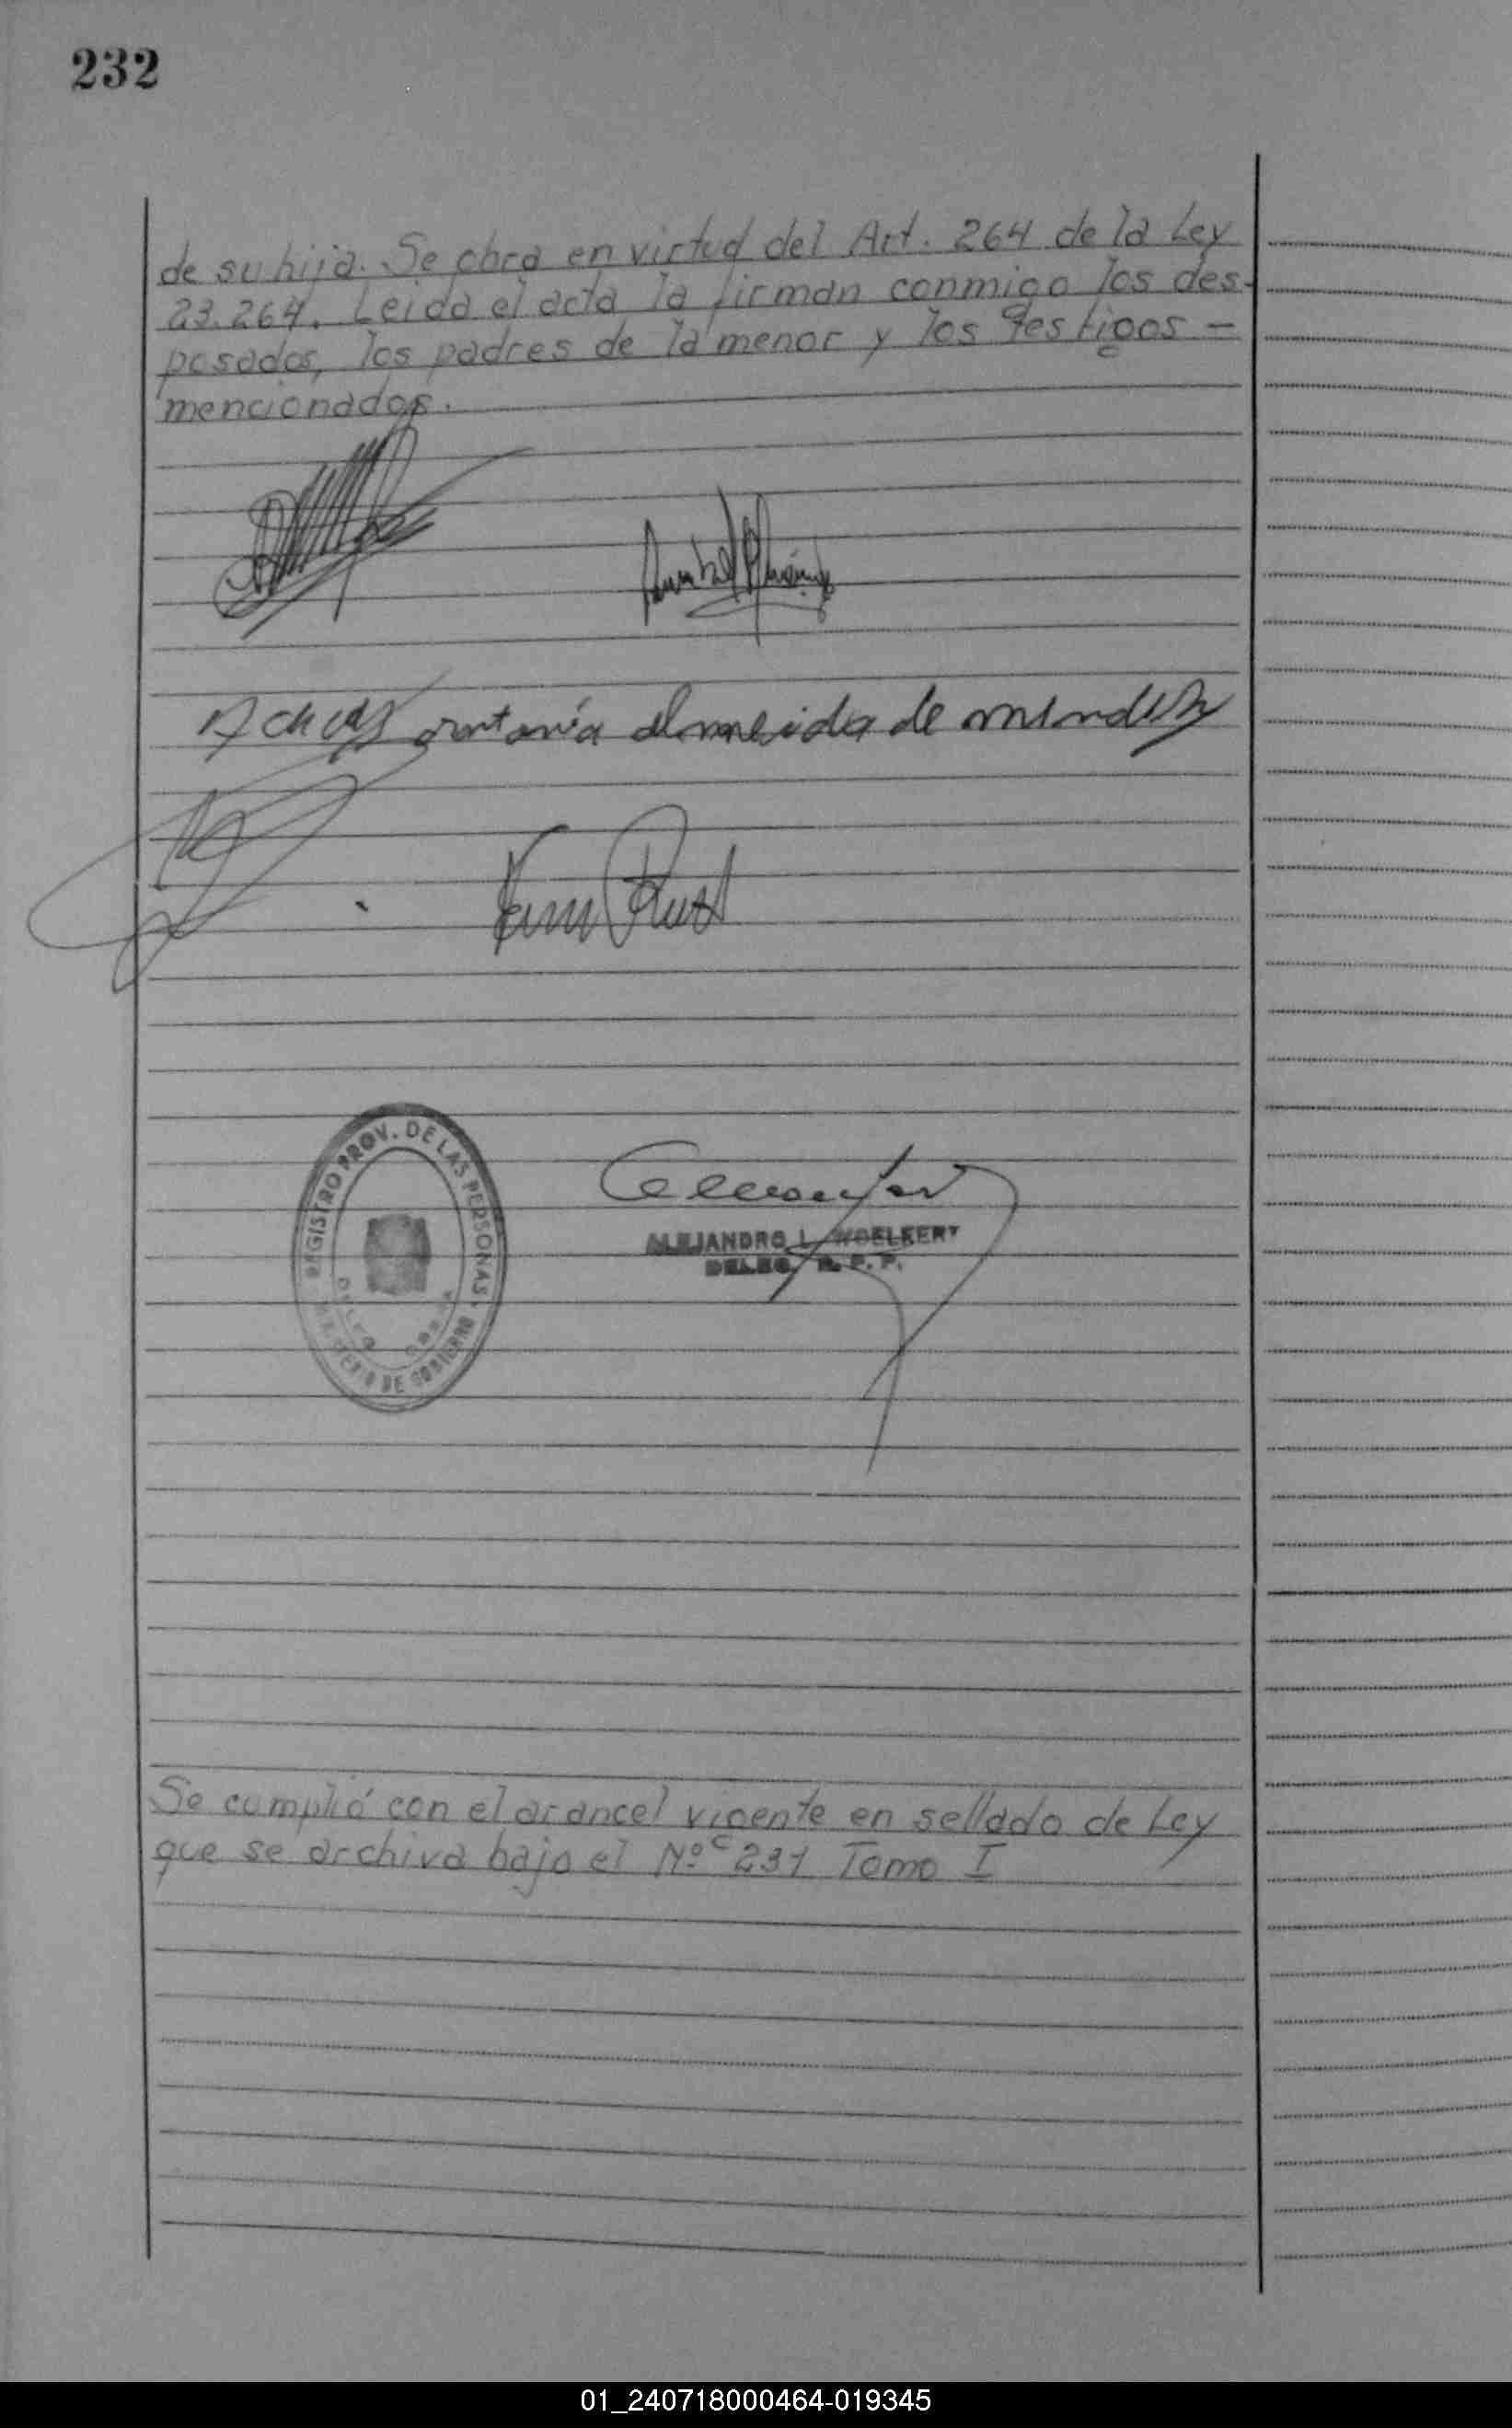 232
de su hija. Se obra en virtud del Art. 264 de la Ley
23.264. Leida el acta la firman conmigo los des-
posados, los padres de la menor y los Testigos -
mencionados.
antonia almeida de mendez
REGISTRO PROV. DE LAS PERSONAS
DE GOBIERNO
ALEJANDRO L. WOELKERT
DELEG. R. P. P.
Se cumplió con el arancel vigente en sellado de Ley
que se archiva bajo el Nº 231 Tomo I
01_240718000464-019345